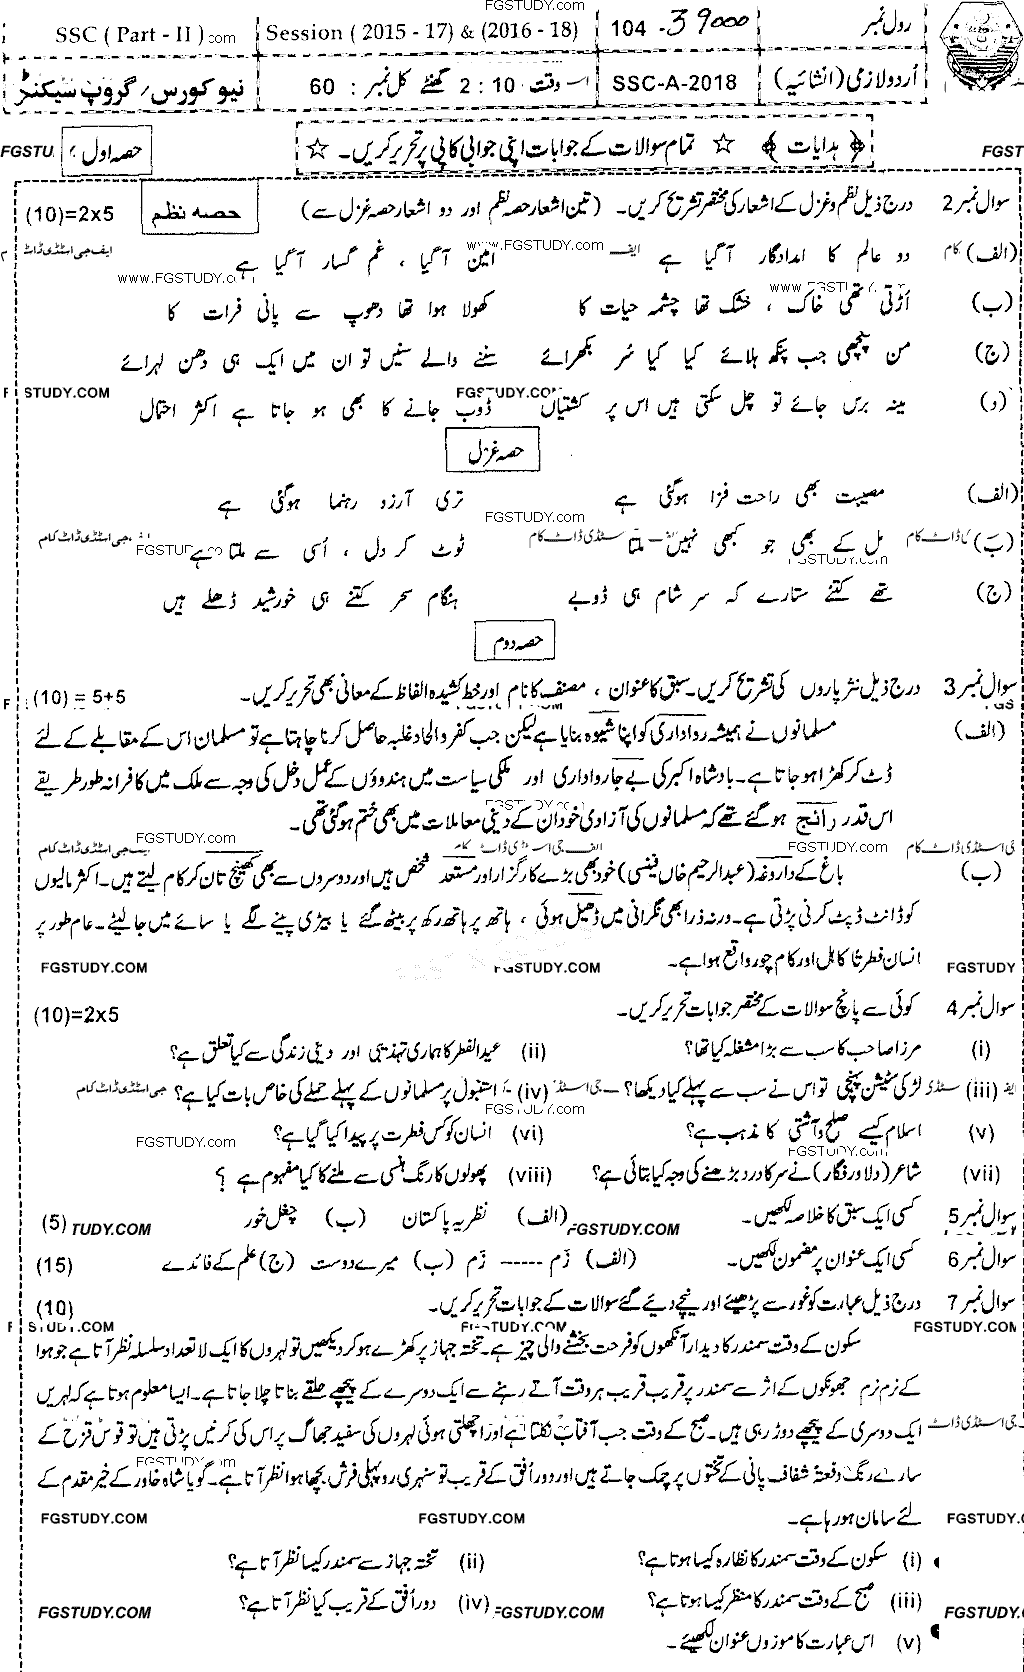 FGSTUDY.COM
SSC ( Part - II ) .com Session ( 2015 - 17) & (2016 - 18) 104 - 39000 رول نمبر
نیو کورس / گروپ سیکنڈ وقت 2 : 10 گھنٹے کل نمبر : 60 SSC-A-2018 اُردو لازمی (انشائیہ)
حصہ اول ہدایات ☆ تمام سوالات کے جوابات اپنی جوابی کاپی پر تحریر کریں۔ ☆
سوال نمبر 2 درج ذیل نظم و غزل کے اشعار کی مختصر تشریح کریں۔ (تین اشعار حصہ نظم اور دو اشعار حصہ غزل سے) حصہ نظم (10)=2x5
(الف) دو عالم کا امدادگار آگیا ہے امین آگیا ، غم گسار آگیا ہے
www.FGSTUDY.com
(ب) اُڑتی تھی خاک ، خشک تھا چشمہ حیات کا کھولا ہوا تھا دھوپ سے پانی فرات کا
(ج) من پنچھی جب پنکھ ہلائے کیا کیا سُر بکھرائے سننے والے سنیں تو ان میں ایک ہی دھن لہرائے
FGSTUDY.COM
(د) مینہ برس جائے تو چل سکتی ہیں اس پر کشتیاں ڈوب جانے کا بھی ہو جاتا ہے اکثر احتمال
حصہ غزل
(الف) مصیبت بھی راحت فزا ہوگئی ہے تری آرزو رہنما ہوگئی ہے
FGSTUDY.com
(ب) مل کے بھی جو کبھی نہیں ملتا ٹوٹ کر دل ، اُسی سے ملتا ہے
(ج) تھے کتنے ستارے کہ سر شام ہی ڈوبے ہنگام سحر کتنے ہی خورشید ڈھلے ہیں
حصہ دوم
سوال نمبر 3 درج ذیل نثر پاروں کی تشریح کریں۔ سبق کا عنوان ، مصنف کا نام اور خط کشیدہ الفاظ کے معانی بھی تحریر کریں۔ (10) = 5+5
(الف) مسلمانوں نے ہمیشہ رواداری کو اپنا شیوہ بنایا ہے لیکن جب کفر و الحاد غلبہ حاصل کرنا چاہتا ہے تو مسلمان اس کے مقابلے کے لئے
ڈٹ کر کھڑا ہو جاتا ہے۔ بادشاہ اکبر کی بے جا رواداری اور ملکی سیاست میں ہندوؤں کے عمل دخل کی وجہ سے ملک میں کافرانہ طور طریقے
اس قدر رائج ہو گئے تھے کہ مسلمانوں کی آزادی خود ان کے دینی معاملات میں بھی ختم ہو گئی تھی۔
FGSTUDY.com
(ب) باغ کے داروغہ (عبدالرحیم خاں فینسی) خود بھی بڑے کارگزار اور مستعد شخص ہیں اور دوسروں سے بھی کھینچ تان کر کام لیتے ہیں۔ اکثر مالیوں
کو ڈانٹ ڈپٹ کرنی پڑتی ہے۔ ورنہ ذرا بھی نگرانی میں ڈھیل ہوئی ، ہاتھ پر ہاتھ رکھ بیٹھ گئے یا بیڑی پینے لگے یا سائے میں جا لیٹے۔ عام طور پر
انسان فطرتاً کاہل اور کام چور واقع ہوا ہے۔
FGSTUDY.COM
سوال نمبر 4 کوئی سے پانچ سوالات کے مختصر جوابات تحریر کریں۔ (10)=2x5
(i) مرزا صاحب کا سب سے بڑا مشغلہ کیا تھا؟ (ii) عیدالفطر کا ہماری تہذیبی اور دینی زندگی سے کیا تعلق ہے؟
(iii) لڑکی سٹیشن پہنچی تو اس نے سب سے پہلے کیا دیکھا؟ (iv) استنبول پر مسلمانوں کے پہلے حملے کی خاص بات کیا ہے؟
FGSTUDY.com
(v) اسلام کیسے صلح و آشتی کا مذہب ہے؟ (vi) انسان کو کس فطرت پر پیدا کیا گیا ہے؟
(vii) شاعر (دلاور فگار) نے سر کا درد بڑھنے کی وجہ کیا بتائی ہے؟ (viii) پھولوں کا رنگ ہنسی سے ملنے کا کیا مفہوم ہے ؟
سوال نمبر 5 کسی ایک سبق کا خلاصہ لکھیں۔ (الف) نظریہ پاکستان (ب) چغل خور (5)
سوال نمبر 6 کسی ایک عنوان پر مضمون لکھیں۔ (الف) زم ----- زم (ب) میرے دوست (ج) علم کے فائدے (15)
سوال نمبر 7 درج ذیل عبارت کو غور سے پڑھیئے اور نیچے دیئے گئے سوالات کے جوابات تحریر کریں۔ (10)
FGSTUDY.COM
سکون کے وقت سمندر کا دیدار آنکھوں کو فرحت بخشنے والی چیز ہے۔ تختہ جہاز پر کھڑے ہو کر دیکھیں تو لہروں کا ایک لا تعداد سلسلہ نظر آتا ہے جو ہوا
کے نرم نرم جھونکوں کے اثر سے سمندر پر قریب قریب ہر وقت آتے رہنے سے ایک دوسرے کے پیچھے حلقے بناتا چلا جاتا ہے۔ ایسا معلوم ہوتا ہے کہ لہریں
ایک دوسری کے پیچھے دوڑ رہی ہیں۔ صبح کے وقت جب آفتاب نکلتا ہے اور اچھلتی ہوئی لہروں کی سفید جھاگ پر اس کی کرنیں پڑتی ہیں تو قوس قزح کے
سارے رنگ دفعۃً شفاف پانی کے تختوں پر چمک جاتے ہیں اور دور اُفق کے قریب تو سنہری روپہلی فرش بچھا ہوا نظر آتا ہے۔ گویا شاہ خاور کے خیر مقدم کے
لئے سامان ہو رہا ہے۔
FGSTUDY.COM
(i) سکون کے وقت سمندر کا نظارہ کیسا ہوتا ہے؟ (ii) تختہ جہاز سے سمندر کیسا نظر آتا ہے؟
(iii) صبح کے وقت سمندر کا منظر کیسا ہوتا ہے؟ (iv) دور اُفق کے قریب کیا نظر آتا ہے؟
FGSTUDY.COM
(v) اس عبارت کا موزوں عنوان لکھیئے۔